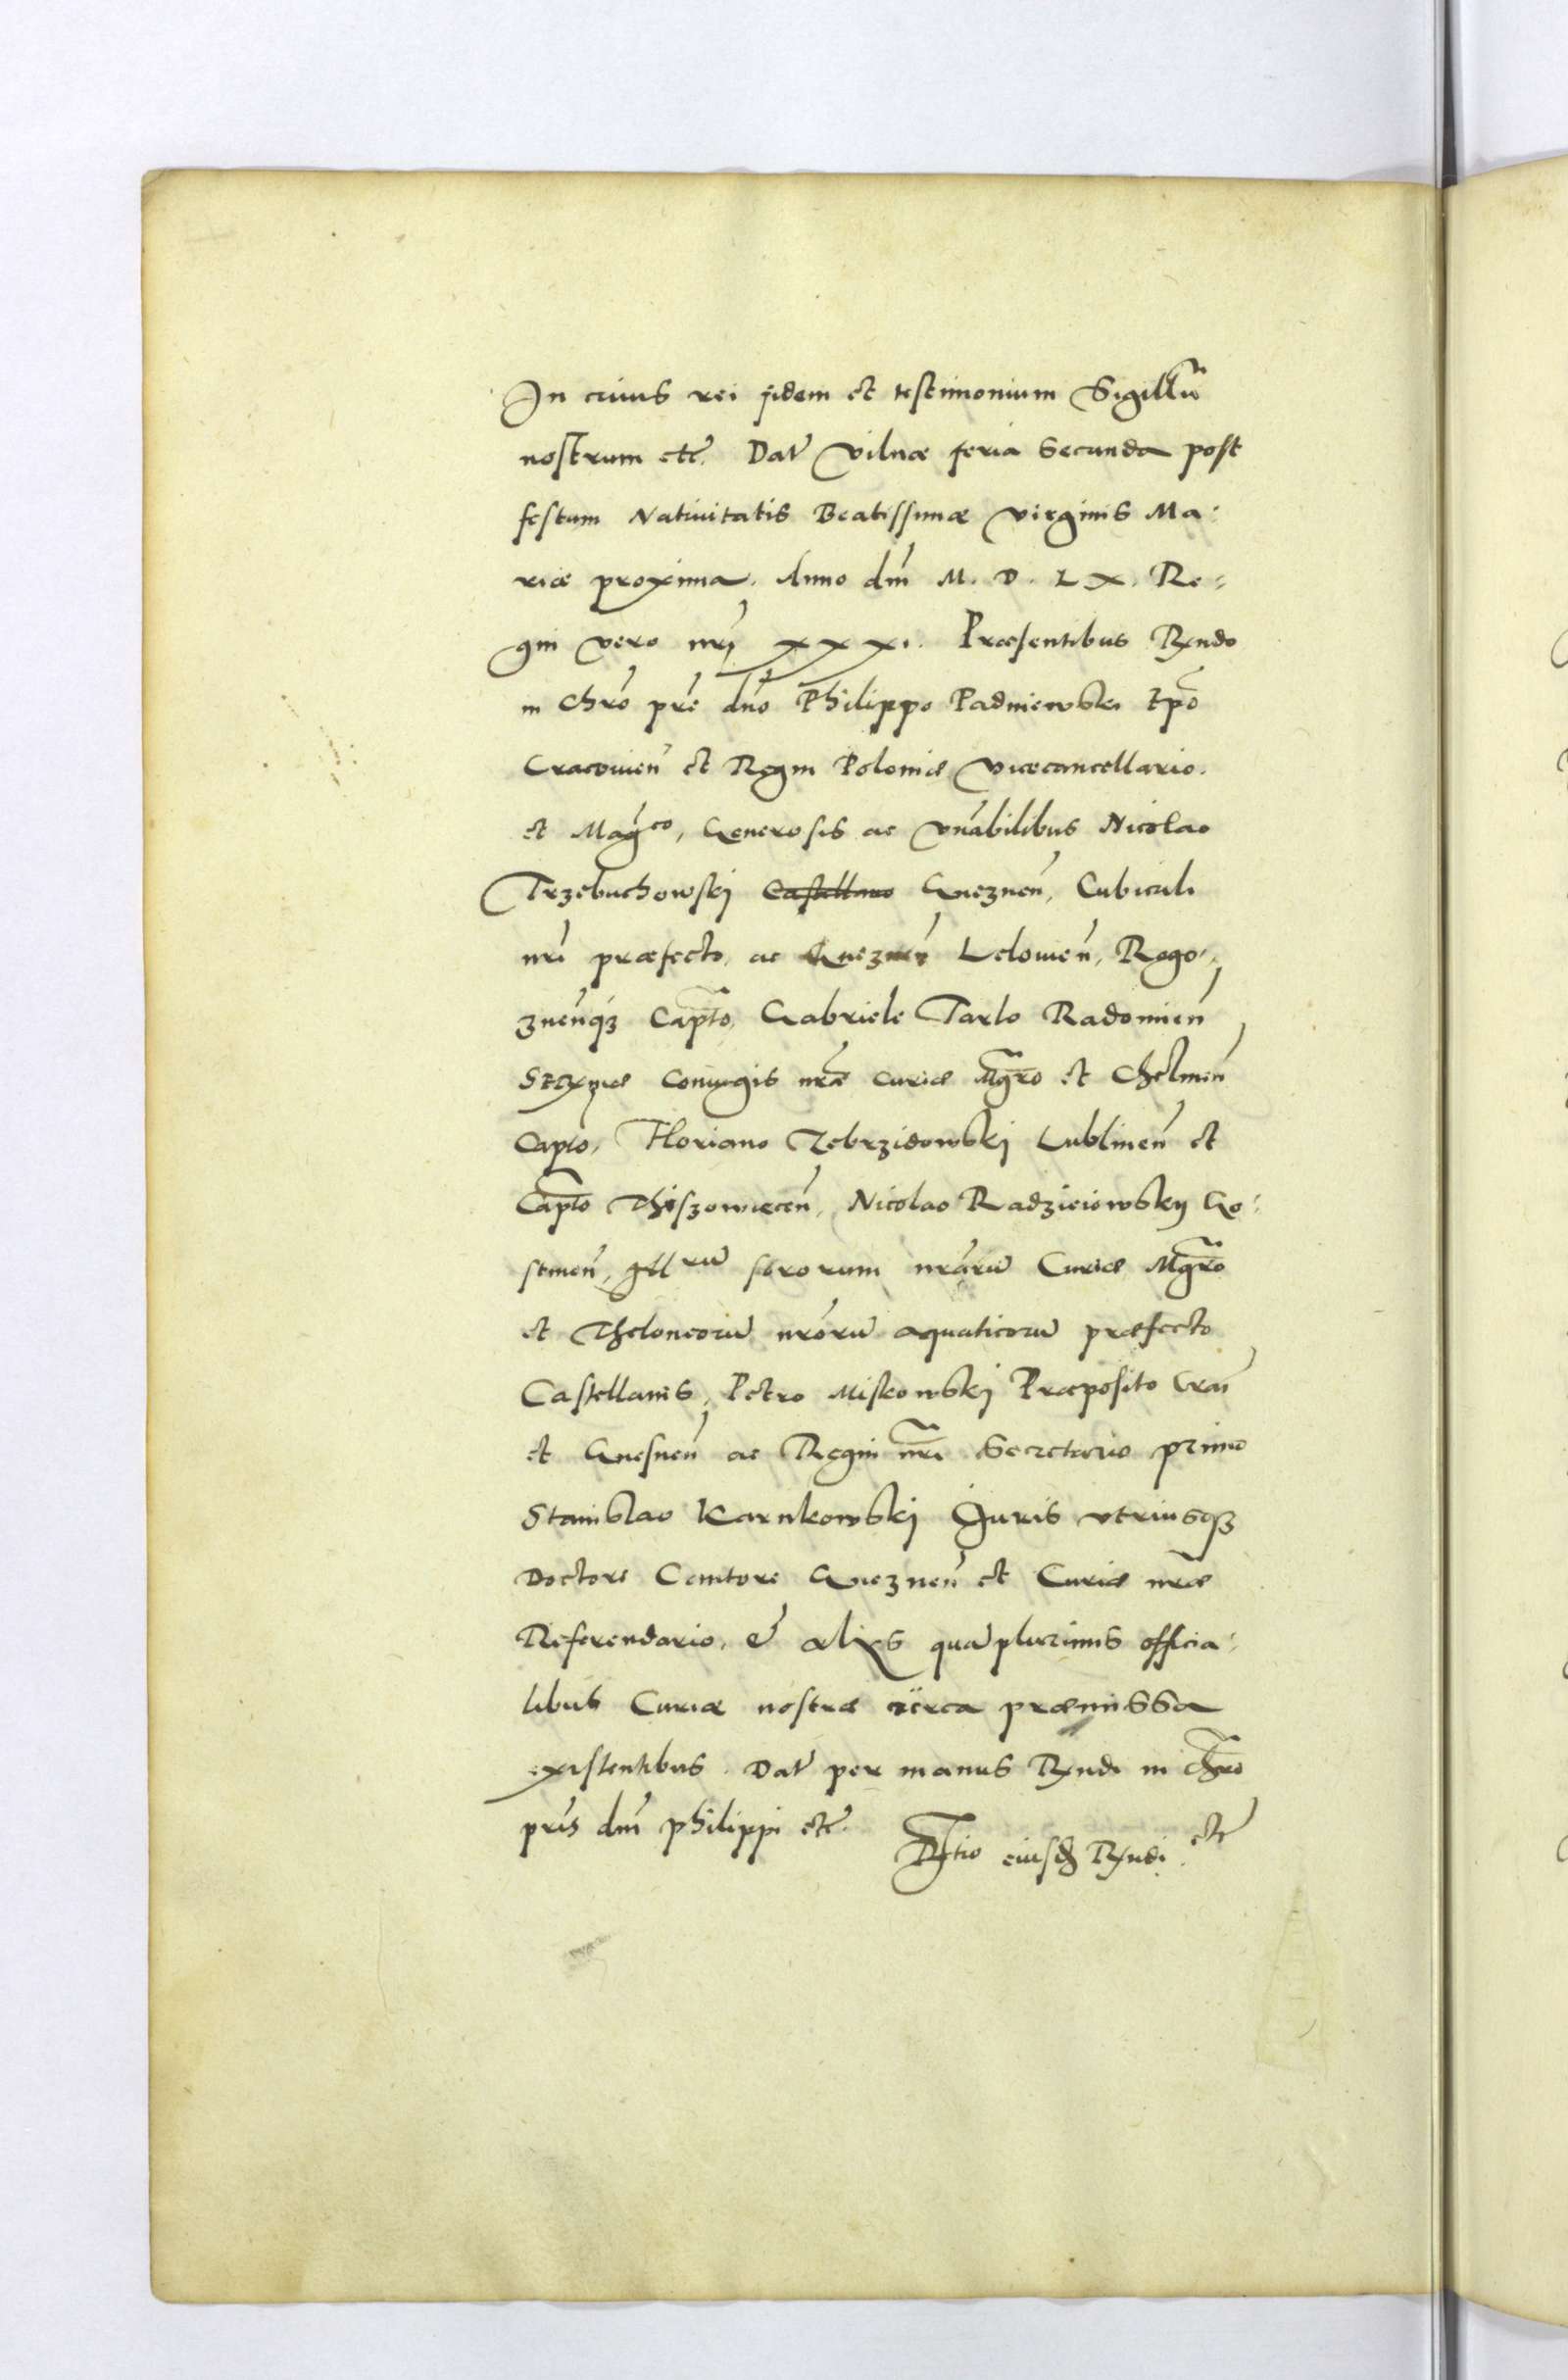 In cuius rei fidem et testimonium Sigillū
nostrum etc̃. Dat̃ Vilnæ feria Secunda post
festum Nativitatis Beatissimæ virginis Ma-
riæ proxima. Anno dm̃ M. D. L X. Re-
gni vero nr̃j x x x i. Præsentibus R̃ndo
in Chrõ pr̃e dn̄o Philippo Padniewski Ep̃o
Cracovien̄ et Regni Poloniæ Vicecancellario.
et Mag̃co, Generosis ac vn̄abilibus Nicolao
Trzebuchowskj Castellano Gneznen̄, Cubiculi
nr̃i præfecto, ac Gneznen̄ Lelovien̄, Rogo-
znen̄qȝ Cap̃to, Gabriele Tarlo Radomien̄
Ser̃mæ Coniugis nr̃æ curiæ Mg̃ro et Chelmen̄
Capto, Floriano Zebrzidowskj Lublinen̄ et
Cap̃to Thiszowiecen̄, Nicolao Radzieiowskÿ Go-
stinen̄, Ill rū sororum nr̃arū Curiæ Mg̃ro
et Theloneorū nr̃orū aquaticorū præfecto
Castellanis, Petro Miskowskj Præposito Cran̄
et Gnesnen̄ ac Regni nr̃i Secretario primo
Stanislao Karnkowskj Juris vtriusqȝ
Doctore Cantore Gneznen̄ et Curiæ nr̃æ
Referendario, & alijs quāplurimis officia-
libus Curiæ nostræ circa præmissa
existentibus. Dat̃ per manus R̃ndi in Chr̃o
pr̃is dn̄i Philippi etc̃.
R̃tio eiusd̃ R̃ndi. etc̃